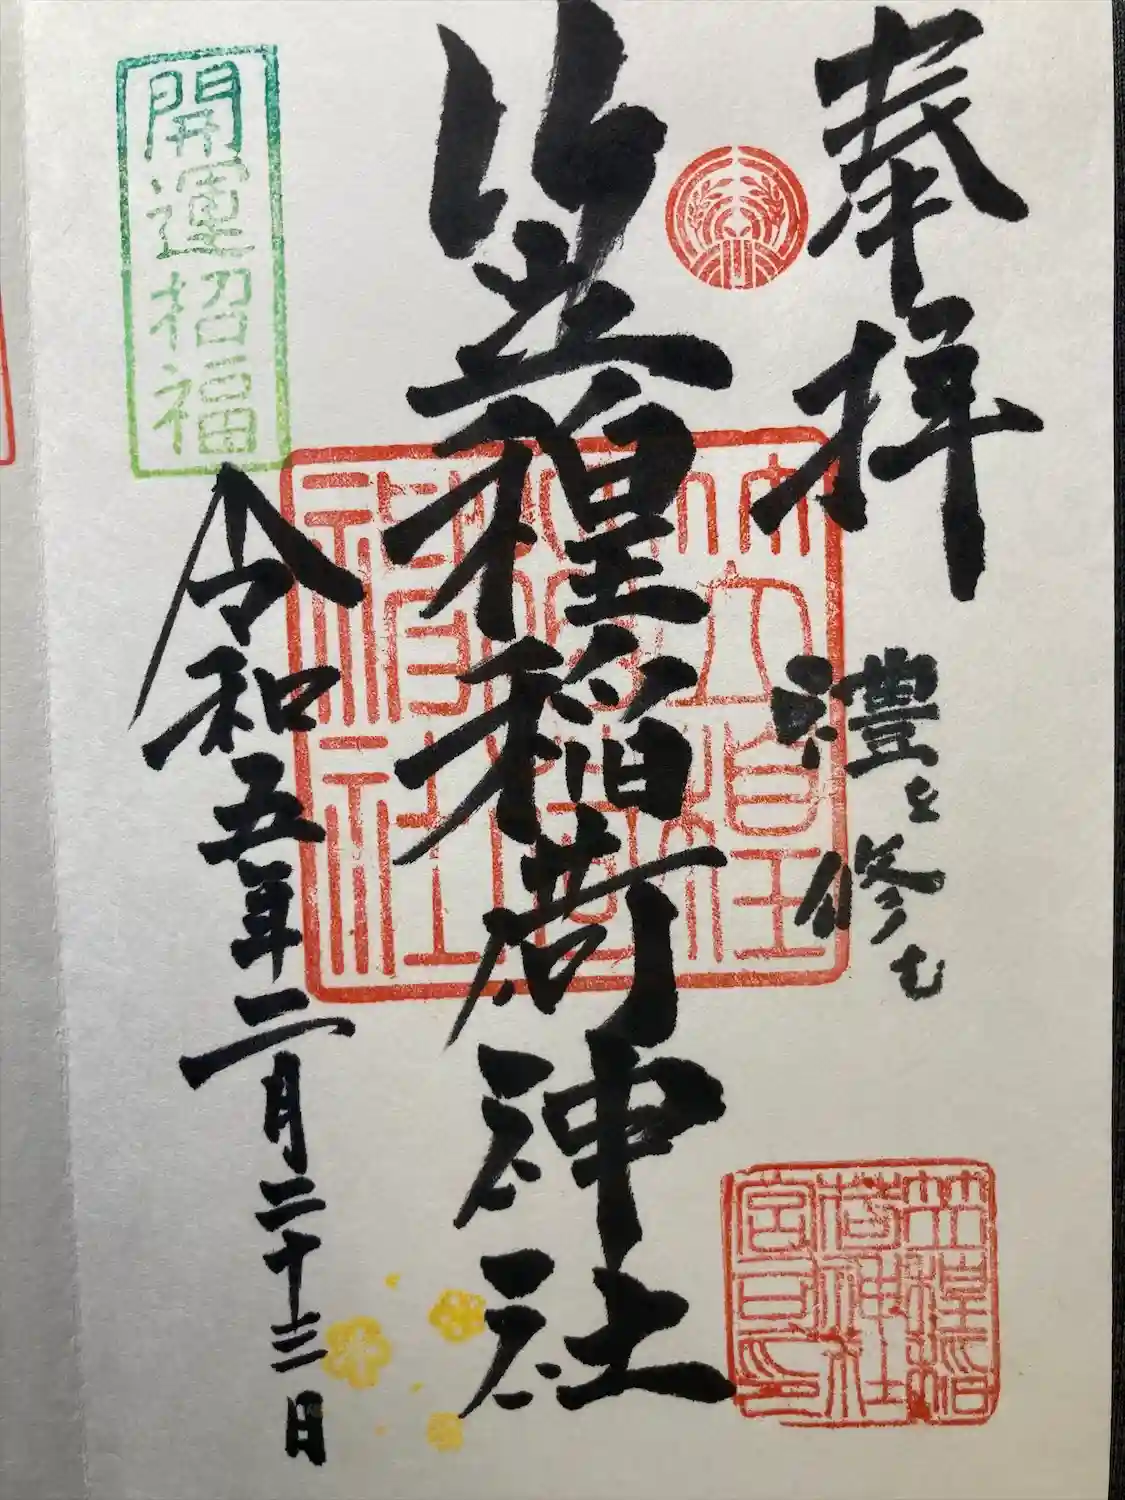 奉拝
禮を修む
笠䅣稲荷神社
令和五年二月二十三日
開運招福
笠䅣
稲荷
神社
笠䅣稲
荷神社
宮司印